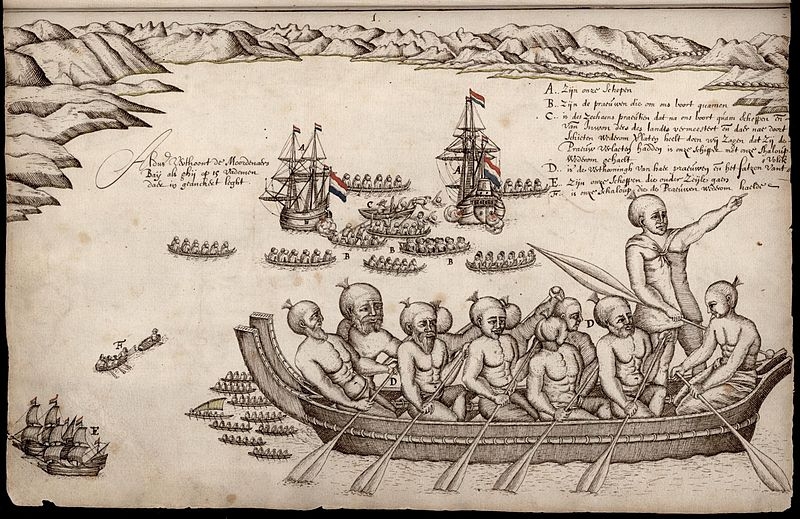 1
A. Zijn onze Schepen
B. Zijn de prauwen die om ons boort quamen
C. is des Zeehaens praeutken dat na ons boort quam scheppen
Van Inwon des landts vermeestert en daer nae door
Schieten Wederom Verlaten hebben wij zagen dat zij de
Prauw Verlaeten hadden is onze Schipper met onse Chaloup
Wederom gehaelt
D. is de Verthooningh Van haer praeuwen en het fatzoen Vant Volck
E. Zijn onze Schepen die onder Zeijle gaen
F. is onze Schaloup die de Praeuwen wederom haelde
Aldus Verthoont de Moordenaers
Baij als ghij op 15 Vademen
daer in geanckert leght
A
A
C
B
B
B
D
D
F
E